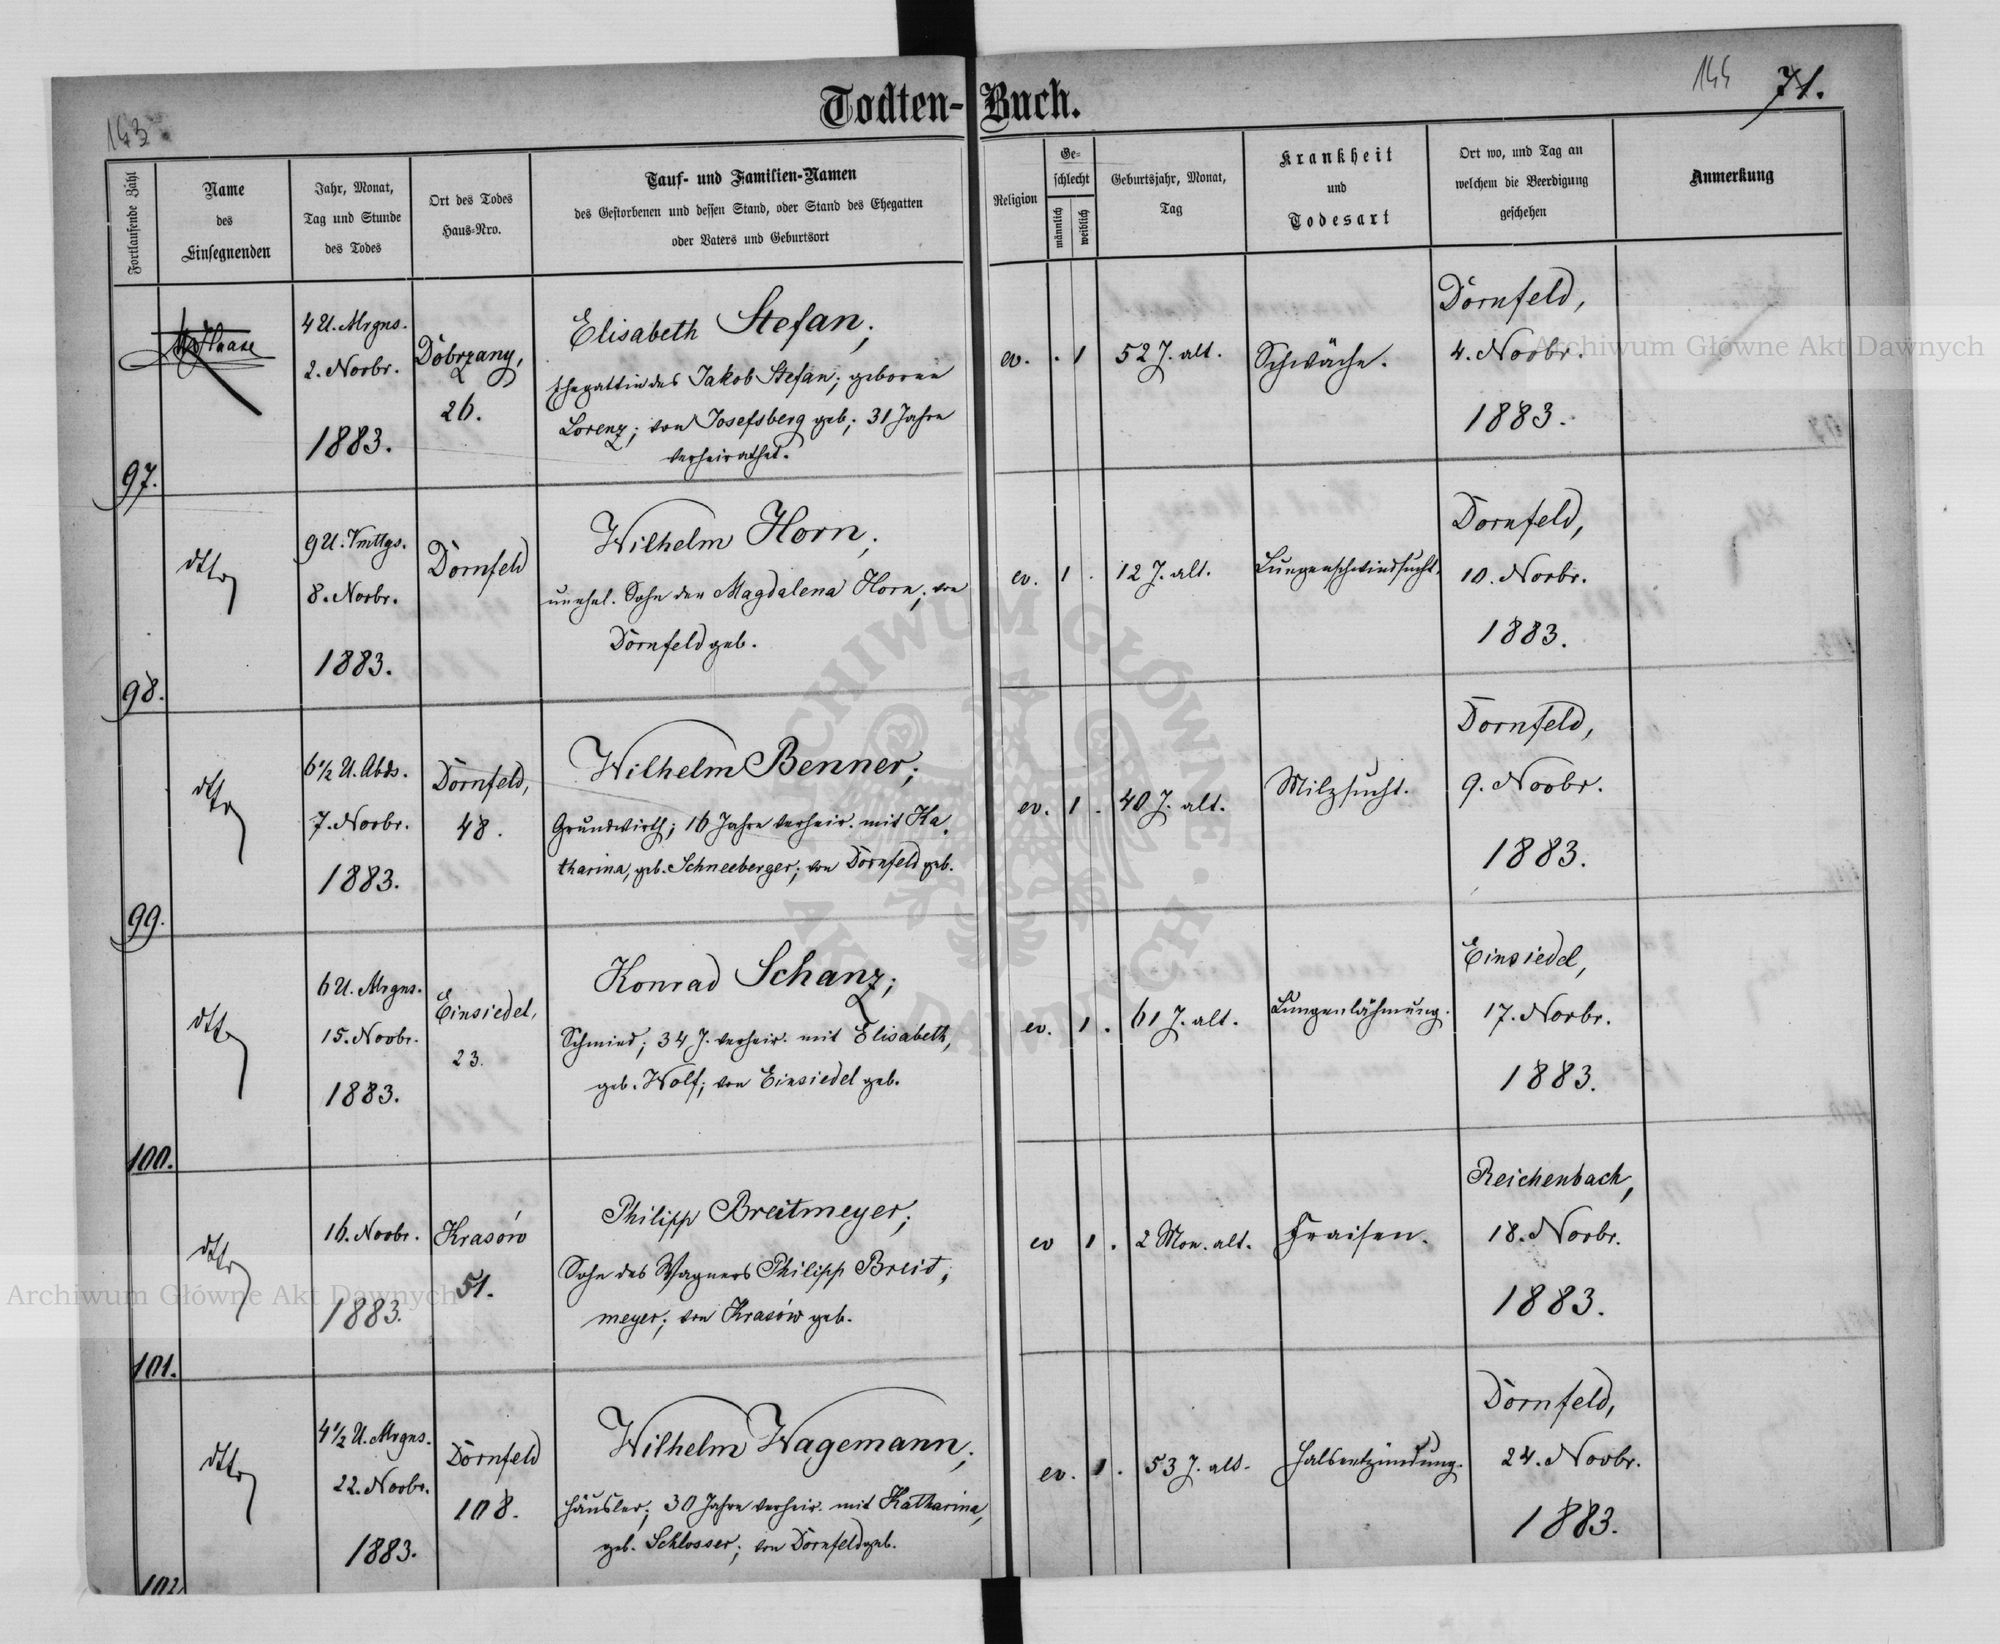 Todten-Buch.
143
144
71.
Fortlaufende Zahl
Name
des
Einsegnenden
Jahr, Monat,
Tag und Stunde
des Todes
Ort des Todes
Haus-Nro.
Tauf- und Familien-Namen
des Gestorbenen und dessen Stand, oder Stand des Ehegatten
oder Vaters und Geburtsort
Religion
Ge-
schlecht
männlich
weiblich
Geburtsjahr, Monat,
Tag
Krankheit
und
Todesart
Ort wo, und Tag an
welchem die Beerdigung
geschehen
Anmerkung
97.
Haase
4 U. Mrgns.
2. Novbr.
1883.
Dobrzany,
26.
Elisabeth Stefan;
Ehegattin des Jakob Stefan; geborene
Lorenz; von Josefsberg geb; 31 Jahre
verheirathet.
ev. . 1
52 J. alt.
Schwäche.
Dornfeld,
4. Novbr.
1883.
98.
dtto
9 U. Vmttgs.
8. Novbr.
1883.
Dornfeld
Wilhelm Horn;
unehel. Sohn der Magdalena Horn; von
Dornfeld geb.
ev. 1 .
12 J. alt.
Lungenschwindsucht.
Dornfeld,
10. Novbr.
1883.
99.
dtto
6 1/2 U. Abds.
7. Novbr.
1883.
Dornfeld,
48.
Wilhelm Benner;
Grundwirth; 16 Jahre verheir. mit Ka-
tharina, geb. Schneeberger; von Dornfeld geb.
ev. 1 .
40 J. alt.
Milzsucht.
Dornfeld,
9. Novbr.
1883.
100.
dtto
6 U. Mrgns.
15. Novbr.
1883.
Einsiedel,
23.
Konrad Schanz;
Schmied; 34 J. verheir. mit Elisabeth,
geb. Wolf; von Einsiedel geb.
ev. 1 .
61 J. alt.
Lungenlähmung.
Einsiedel,
17. Novbr.
1883.
101.
dtto
16. Novbr.
1883.
Krasów
51.
Philipp Breitmeyer;
Sohn des Wagners Philipp Breit-
meyer; von Krasów geb.
ev 1 .
2 Mon. alt.
Fraisen.
Reichenbach,
18. Novbr.
1883.
102
dtto
4 1/2 U. Mrgns.
22. Novbr.
1883.
Dornfeld
108.
Wilhelm Wagemann;
Häusler; 30 Jahre verheir. mit Katharina,
geb. Schlosser; von Dornfeld geb.
ev. 1 .
53 J. alt.
Halsentzündung.
Dornfeld,
24. Novbr.
1883.
Archiwum Główne Akt Dawnych
Archiwum Główne Akt Dawnych
ARCHIWUM GŁÓWNE AKT DAWNYCH